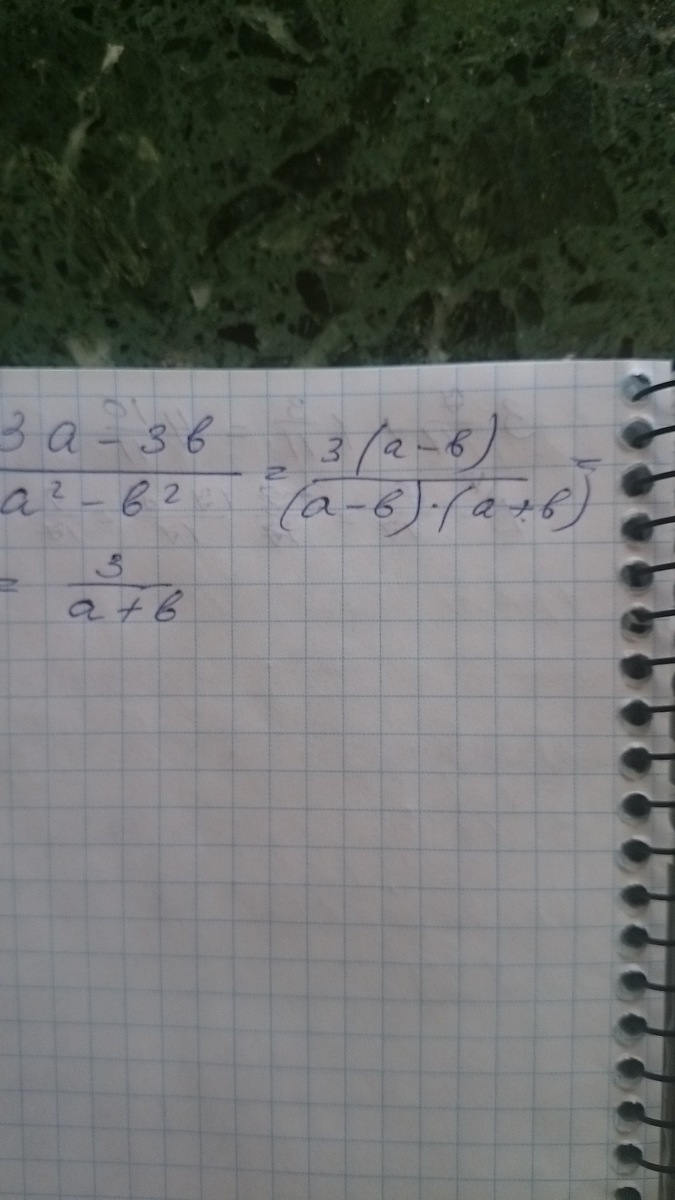 3a - 3b
a² - b²
= 3(a - b)
(a - b)·(a + b) =
= 3
a + b